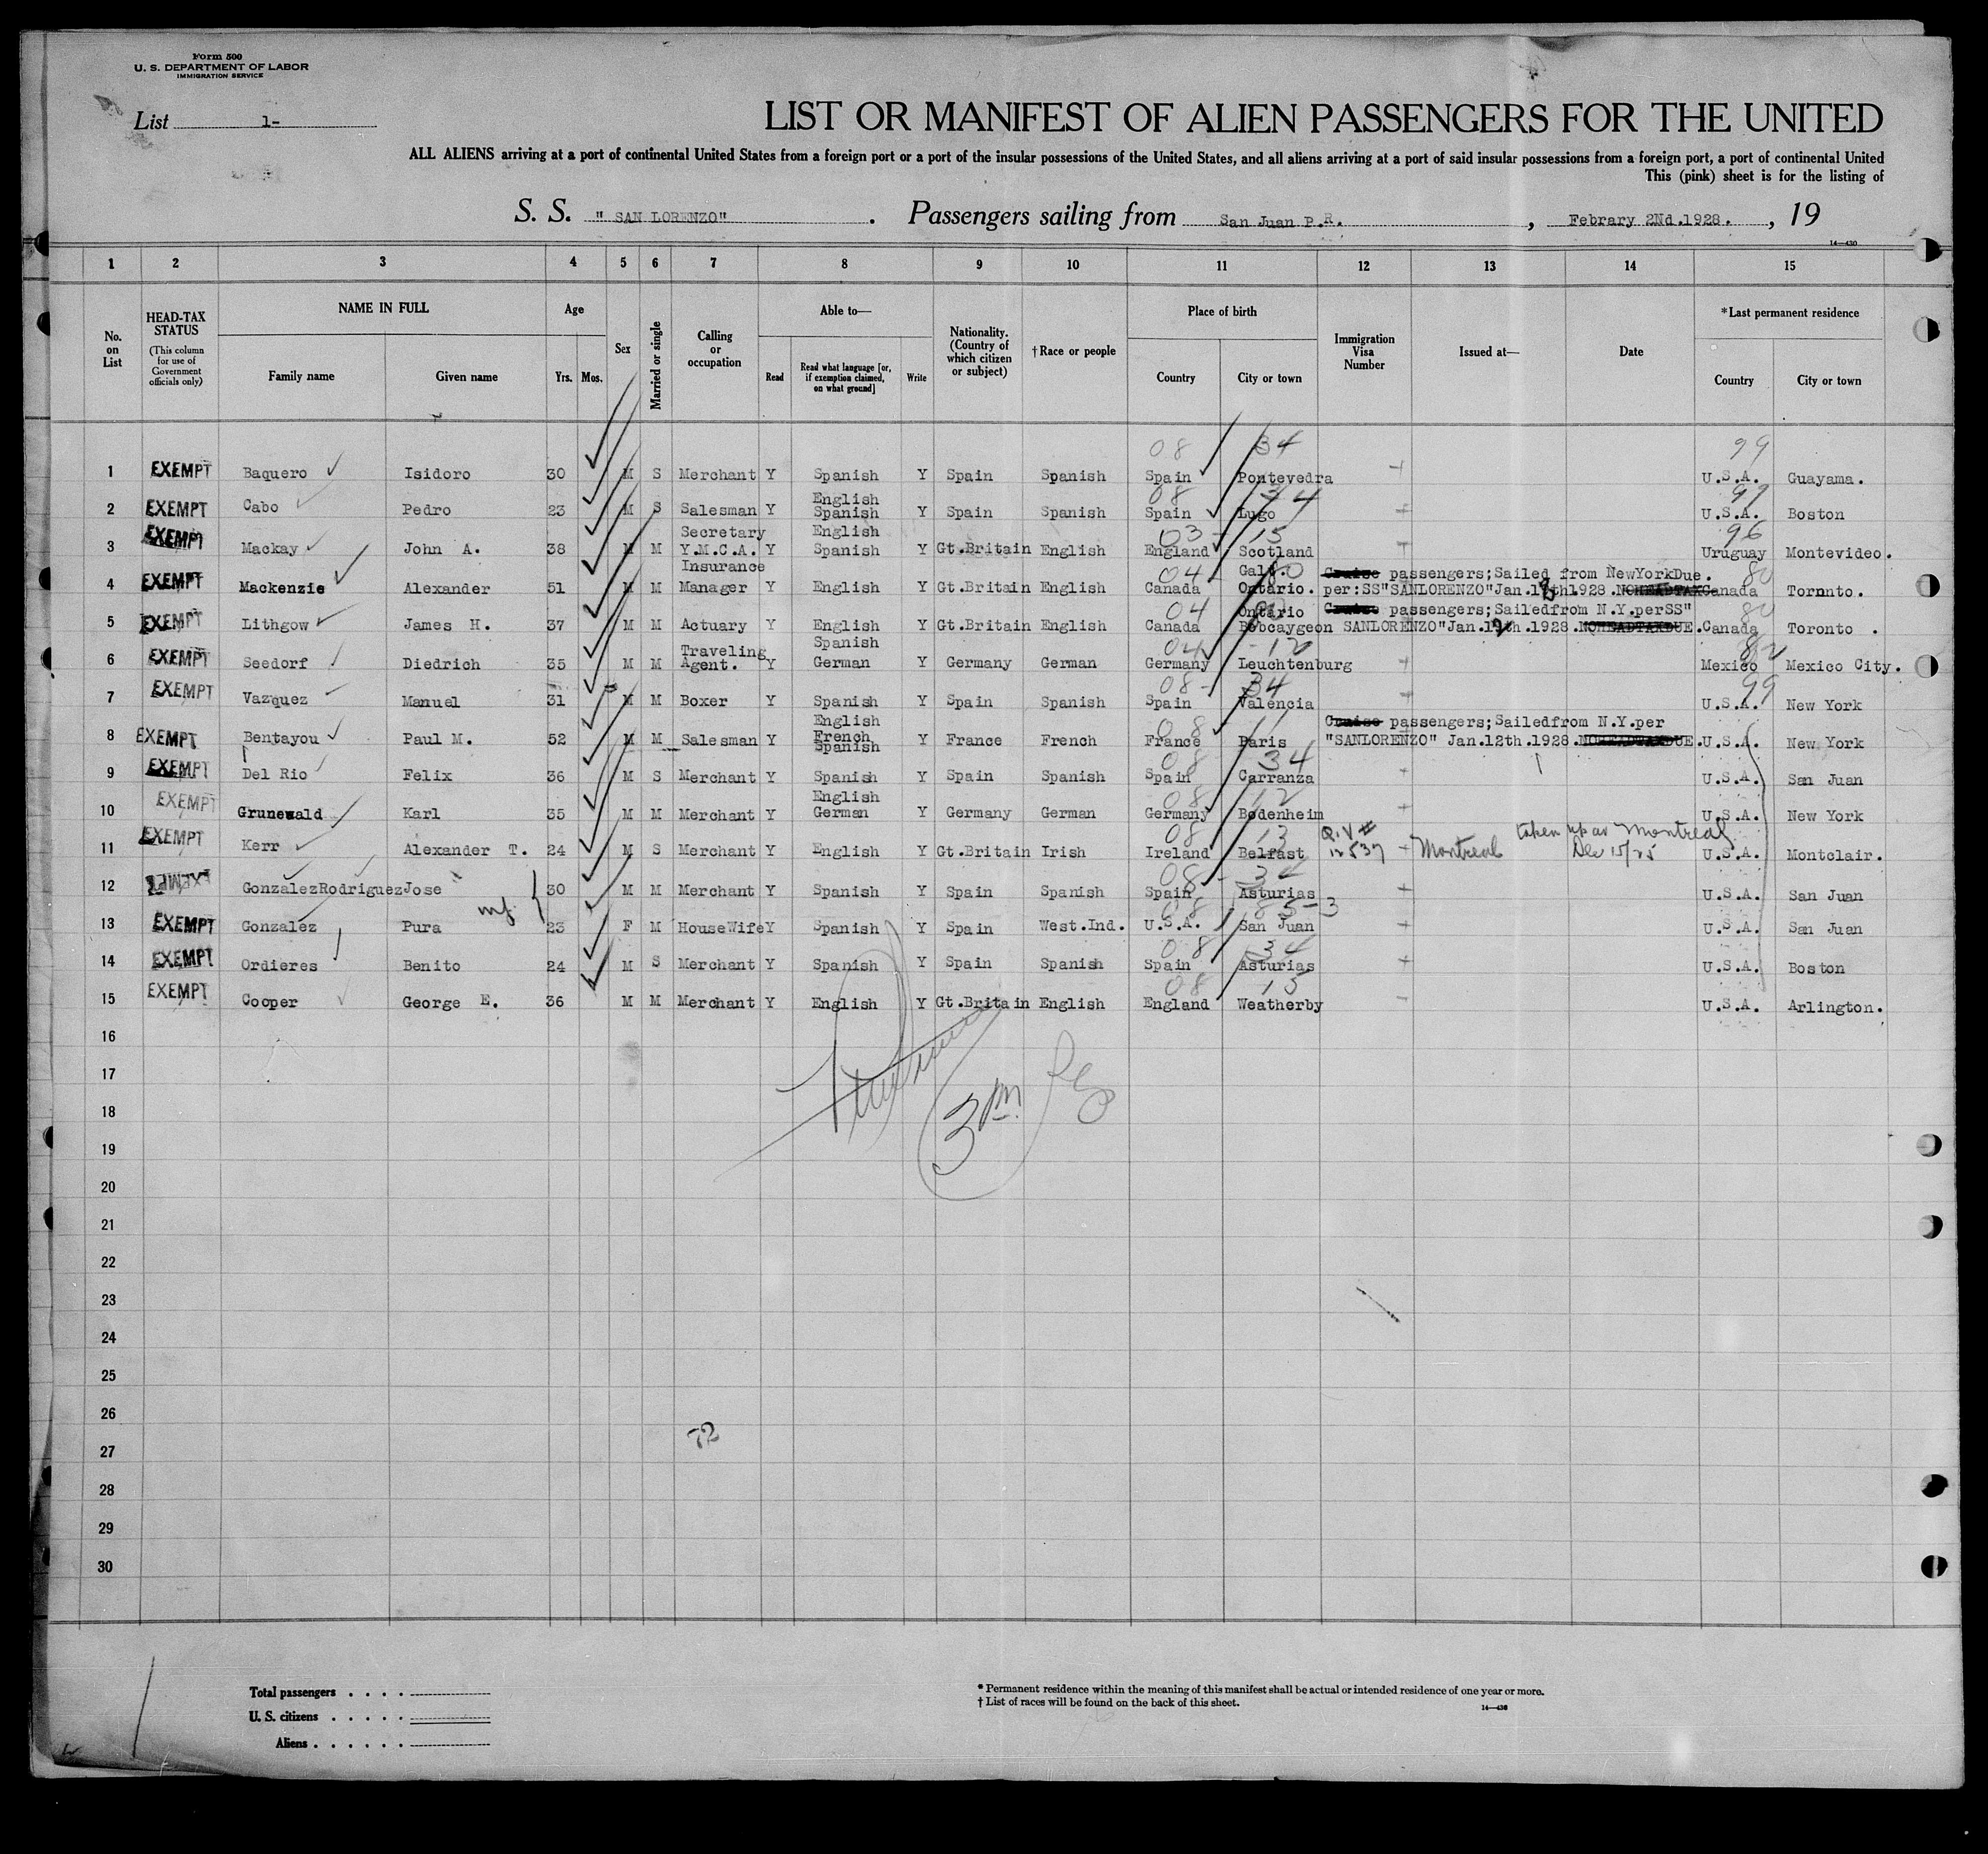 Form 500
U. S. DEPARTMENT OF LABOR
IMMIGRATION SERVICE
List 1-
LIST OR MANIFEST OF ALIEN PASSENGERS FOR THE UNITED
ALL ALIENS arriving at a port of continental United States from a foreign port or a port of the insular possessions of the United States, and all aliens arriving at a port of said insular possessions from a foreign port, a port of continental United
This (pink) sheet is for the listing of
S. S. " SAN LORENZO" . Passengers sailing from San Juan P.R. , Febrary 2Nd.1928. , 19
14—430
1 2 3 4 5 6 7 8 9 10 11 12 13 14 15
No. on List
HEAD-TAX STATUS (This column for use of Government officials only)
NAME IN FULL Family name Given name
Age Yrs. Mos.
Sex
Married or single
Calling or occupation
Able to— Read Read what language [or, if exemption claimed, on what ground] Write
Nationality. (Country of which citizen or subject)
†Race or people
Place of birth Country City or town
Immigration Visa Number
Issued at—
Date
*Last permanent residence Country City or town
08 34 99
1 EXEMPT Baquero Isidoro 30 M S Merchant Y Spanish Y Spain Spanish Spain Pontevedra U.S.A. Guayama.
English 08 34 99
2 EXEMPT Cabo Pedro 23 M S Salesman Y Spanish Y Spain Spanish Spain Lugo U.S.A. Boston
Secretary English 03 15 96
3 EXEMPT Mackay John A. 38 M M Y.M.C.A. Y Spanish Y Gt.Britain English England Scotland Uruguay Montevideo.
Insurance 04 Galt. 80 Cruise passengers;Sailed from NewYorkDue. 80
4 EXEMPT Mackenzie Alexander 51 M M Manager Y English Y Gt.Britain English Canada Ontario. per:SS"SANLORENZO"Jan.12th1928.NOHEADTAX Canada Tornnto.
04 Ontario Cruise passengers;Sailedfrom N.Y.perSS" 80
5 EXEMPT Lithgow James H. 37 M M Actuary Y English Y Gt.Britain English Canada Bobcaygeon SANLORENZO"Jan.12th.1928.NOHEADTAXDUE. Canada Toronto .
Traveling Spanish 04 12 82
6 EXEMPT Seedorf Diedrich 35 M M Agent. Y German Y Germany German Germany Leuchtenburg Mexico Mexico City.
08 34 99
7 EXEMPT Vazquez Manuel 31 M M Boxer Y Spanish Y Spain Spanish Spain Valencia U.S.A. New York
English 08 11 Cruise passengers;Sailedfrom N.Y.per
8 EXEMPT Bentayou Paul M. 52 M M Salesman Y French Spanish Y France French France Paris "SANLORENZO" Jan.12th.1928.NOHEADTAXDUE. U.S.A. New York
08 34
9 EXEMPT Del Rio Felix 36 M S Merchant Y Spanish Y Spain Spanish Spain Carranza U.S.A. San Juan
English 08 12
10 EXEMPT Grunewald Karl 35 M M Merchant Y German Y Germany German Germany Bodenheim U.S.A. New York
08 13 Q.V# taken up at Montreal
11 EXEMPT Kerr Alexander T. 24 M S Merchant Y English Y Gt.Britain Irish Ireland Belfast 12537 Montreal Dec 15/25 U.S.A. Montclair.
08 34
12 EXEMPT GonzalezRodriguez Jose 30 M M Merchant Y Spanish Y Spain Spanish Spain Asturias U.S.A. San Juan
08 85-3
13 EXEMPT Gonzalez Pura 23 F M HouseWife Y Spanish Y Spain West.Ind. U.S.A. San Juan U.S.A. San Juan
08 34
14 EXEMPT Ordieres Benito 24 M S Merchant Y Spanish Y Spain Spanish Spain Asturias U.S.A. Boston
08 15
15 EXEMPT Cooper George E. 36 M M Merchant Y English Y Gt.Britain English England Weatherby U.S.A. Arlington.
16
17
3 m
18
19
20
21
22
23
24
25
26
72
27
28
29
30
Total passengers . . . .
U. S. citizens . . . . .
Aliens . . . . . .
* Permanent residence within the meaning of this manifest shall be actual or intended residence of one year or more.
† List of races will be found on the back of this sheet.
14—430